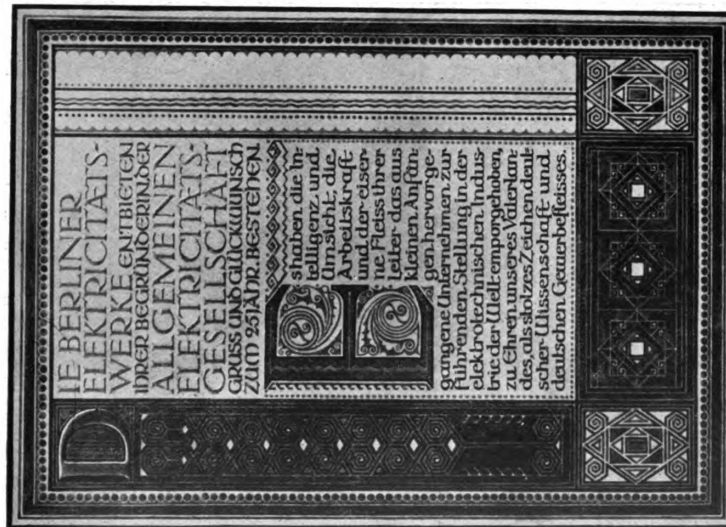 DIE BERLINER
ELEKTRICITÆTS-
WERKE ENTBIETEN
IHRER BEGRÜNDERIN DER
ALLGEMEINEN
ELEKTRICITÆTS-
GESELLSCHAFT
GRUSS UND GLÜCKWUNSCH
ZUM 25JÄHR. BESTEHEN.
Es haben die In-
telligenz und
Umsicht, die
Arbeitskraft
und der eiser-
ne Fleiss ihrer
Leiter das aus
kleinen Anfän-
gen hervorge-
gangene Unternehmen zur
führenden Stellung in der
elektrotechnischen Indus-
trie der Welt emporgehoben,
zu Ehren unseres Vaterlan-
des, als stolzes Zeichen deut-
scher Wissenschaft und
deutschen Gewerbefleisses.